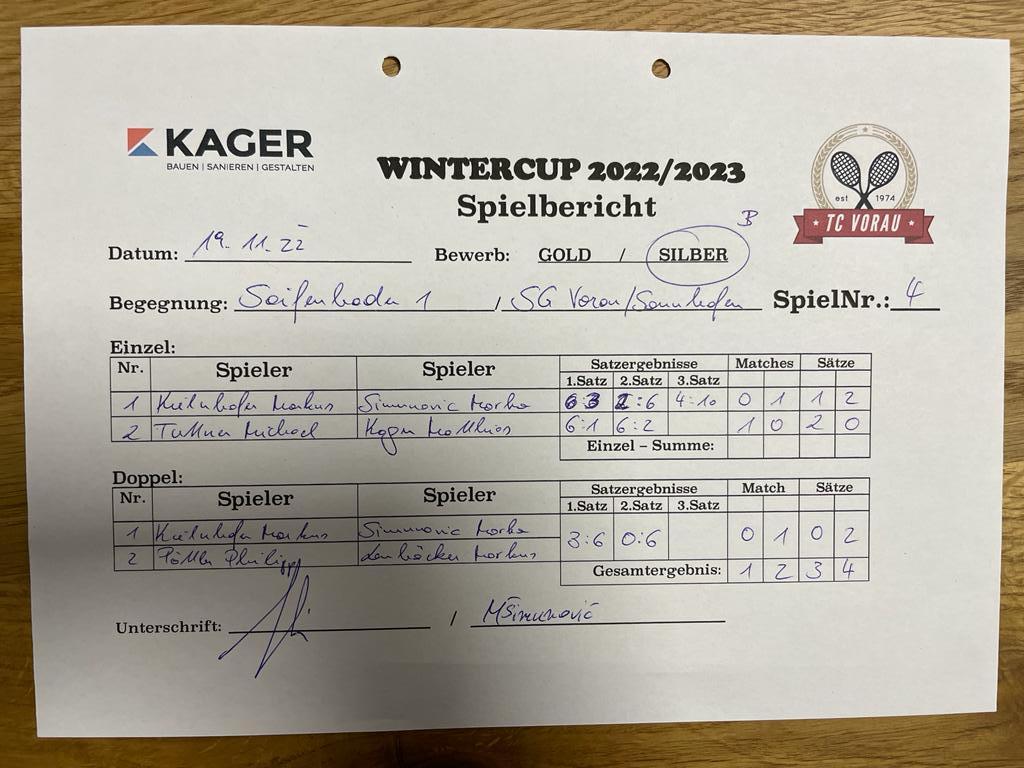 KAGER
BAUEN | SANIEREN | GESTALTEN
WINTERCUP 2022/2023
Spielbericht
est 1974
TC VORAU
Datum: 19.11.22 Bewerb: GOLD / SILBER B
Begegnung: Seifenboden 1 / SG Vorau/Sonnhofen SpielNr.: 4
Einzel:
Nr. Spieler Spieler Satzergebnisse Matches Sätze
1.Satz 2.Satz 3.Satz
1 Markus Simunovic Marko 6:3 2:6 4:10 0 1 1 2
2 Tuttner Michael Matthias 6:1 6:2 1 0 2 0
Einzel – Summe:
Doppel:
Nr. Spieler Spieler Satzergebnisse Match Sätze
1.Satz 2.Satz 3.Satz
1 Markus Simunovic Marko 3:6 0:6 0 1 0 2
2 Philipp Markus
Gesamtergebnis: 1 2 3 4
Unterschrift: / MŠimunović